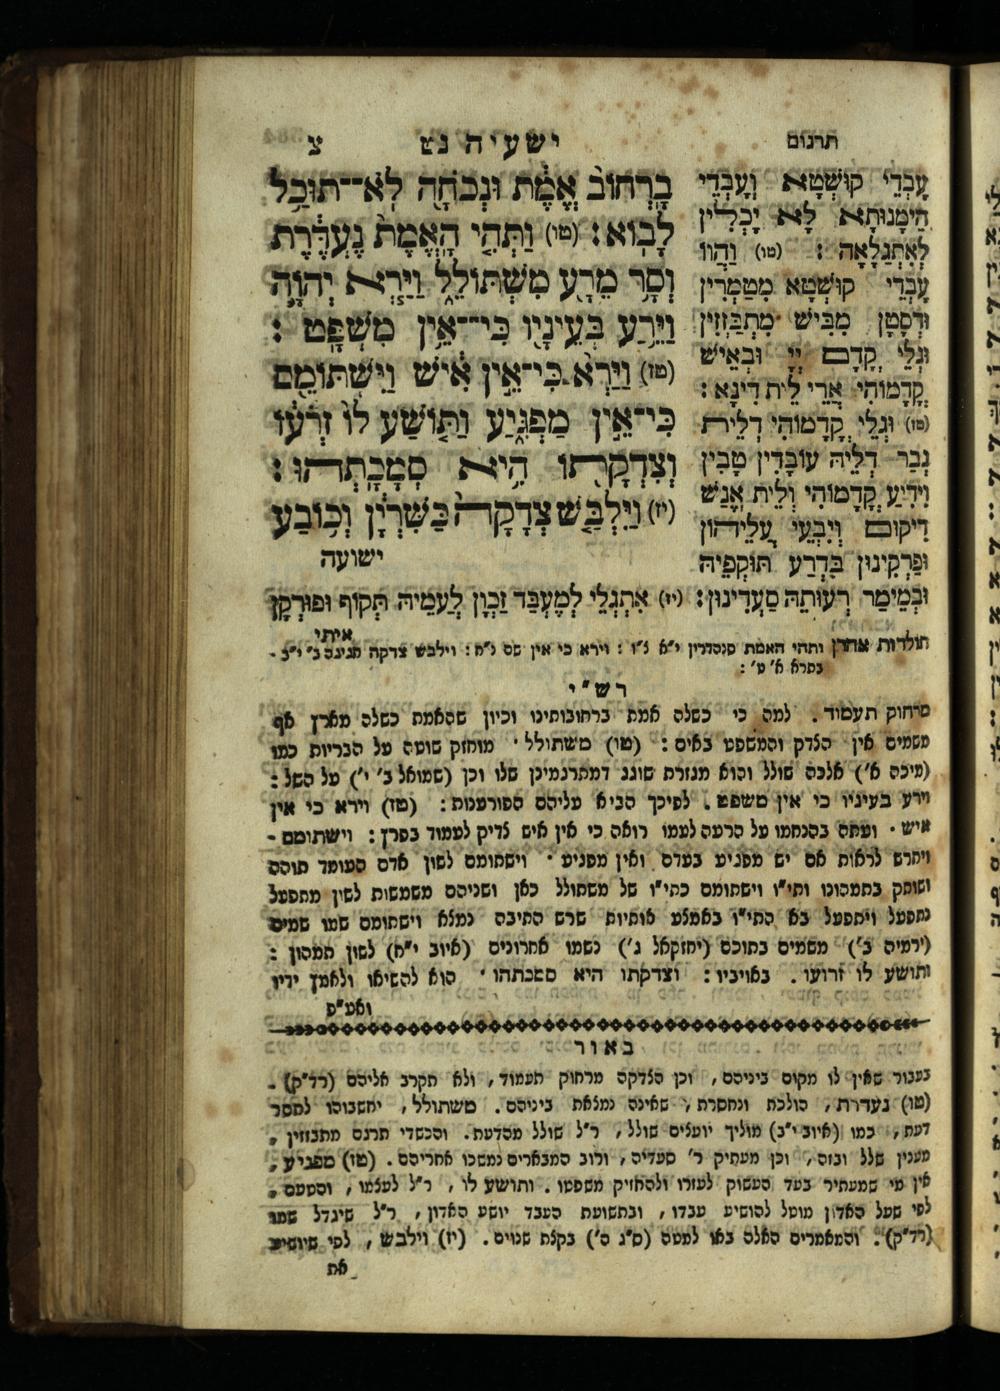 תרגום
ישעיה נט
צ
בָרְחוֹב אֱמֶת וּנְכֹחָה לֹא־תוּכַל
לָבוֹא׃ (טו) וַתְּהִי הָאֱמֶת נֶעְדֶּרֶת
וְסָר מֵרָע מִשְׁתּוֹלֵל וַיַּרְא יְהוָה
וַיֵּרַע בְּעֵינָיו כִּי־אֵין מִשְׁפָּט׃
(טז) וַיַּרְא כִּי־אֵין אִישׁ וַיִּשְׁתּוֹמֵם
כִּי־אֵין מַפְגִּיעַ וַתּוֹשַׁע לוֹ זְרֹעוֹ
וְצִדְקָתוֹ הִיא סְמָכָתְהוּ׃
(יז) וַיִּלְבַּשׁ צְדָקָה כַּשִּׁרְיָן וְכוֹבַע
ישועה
עָבְדֵי קוּשְׁטָא וְעָבְדֵי
הֵימָנוּתָא לָא יָכְלִין
לְאִתְגַּלָאָה׃ (טו) וַהֲווֹ
עָבְדֵי קוּשְׁטָא מִטַמְרִין
וּדְסָטָן מִבִּישׁ מִתְבַּזְזִין
וּגְלֵי קֳדָם יְיָ וּבְאֵישׁ
קֳדָמוֹהִי אֲרֵי לֵית דִינָא׃
(טז) וּגְלֵי קֳדָמוֹהִי דְלֵית
גְבַר דְלֵיהּ עוֹבָדִין טָבִין
וִידִיעַ קֳדָמוֹהִי וְלֵית אֱנַשׁ
דִיקוּם וְיִבְעֵי עֲלֵיהוֹן
וּפַרְקִינוּן בִּדְרַע תּוּקְפֵיהּ
וּבְמֵימַר רְעוּתֵהּ סַעֲדִינוּן׃ (יז) אִתְגְלֵי לְמֶעְבַּד זַכְוָן לְעַמֵיהּ תְּקוֹף וּפוּרְקָן
איתי
תולדות אהרן ותהי האמת סנהדרין י״א צ״ז׃ וירא כי אין שם צ״ח׃ וילבש צדקה חגיגה ב׳ י״ב.
בתרא א׳ ט׳׃
רש״י
מרחוק תעמוד. למה כי כשלה אמת ברחובותינו וכיון שהאמת כשלה מארץ אף
משמים אין הצדק והמשפט באים׃ (טו) משתולל. מוחזק שוטה על הבריות כמו
(מיכה א׳) אלכה שולל והוא מגזרת שוגג דמתרגמינן שלו וכן (שמואל ב׳ ו׳) על השל׃
וירע בעיניו כי אין משפט. לפיכך הביא עליהם הפורענות׃ (טז) וירא כי אין
איש. ועתה בהנחמו על הרעה לעמו רואה כי אין איש צדיק לעמוד בפרץ׃ וישתומם.
ויחרש לראות אם יש מפגיע בעדם ואין מפגיע. וישתומם לשון אדם העומד תוהה
ושותק בתמהונו ותי״ו וישתומם כתי״ו של משתולל כאן ושניהם משמשות לשון מתפעל
נתפעל ויתפעל בא התי״ו באמצע אותיות שרש התיבה נמצא וישתומם שמו שמים
(ירמיה ב׳) משמים בתוכם (יחזקאל ג׳) נשמו אחרונים (איוב י״ח) לשון תמהון׃
ותושע לו זרועו. באויביו׃ וצדקתו היא סמכתהו. הוא להשיאו ולאמץ ידיו
ואע״פ
באור
בעבור שאין לו מקום ביניהם, וכן הצדקה מרחוק תעמוד, ולא תקרב אליהם (רד״ק).
(טו) נעדרת, הולכת ונחסרת, שאינה נמצאת ביניהם. משתולל, יחשבוהו לחסר
דעת, כמו (איוב י״ב) מוליך יועצים שולל, ר״ל שולל מהדעת. והכשדי תרגם מתבוזין,
מענין שלל ובזה, וכן מעתיק ר׳ סעדיה, ורוב המבארים נמשכו אחריהם. (טז) מפגיע,
אין מי שמעתיר בעד העשוק לעזרו ולהחזיק משפטו. ותושע לו, ר״ל לעצמו, והטעם,
לפי שעל האדון מוטל להושיע עבדו, ובתשועת העבד יושע האדון, ר״ל שיגדל שמו
(רד״ק). והמאמרים האלה באו למטה (ס״ג ה׳) בקצת שנוים. (יז) וילבש, לפי שיושיע
את